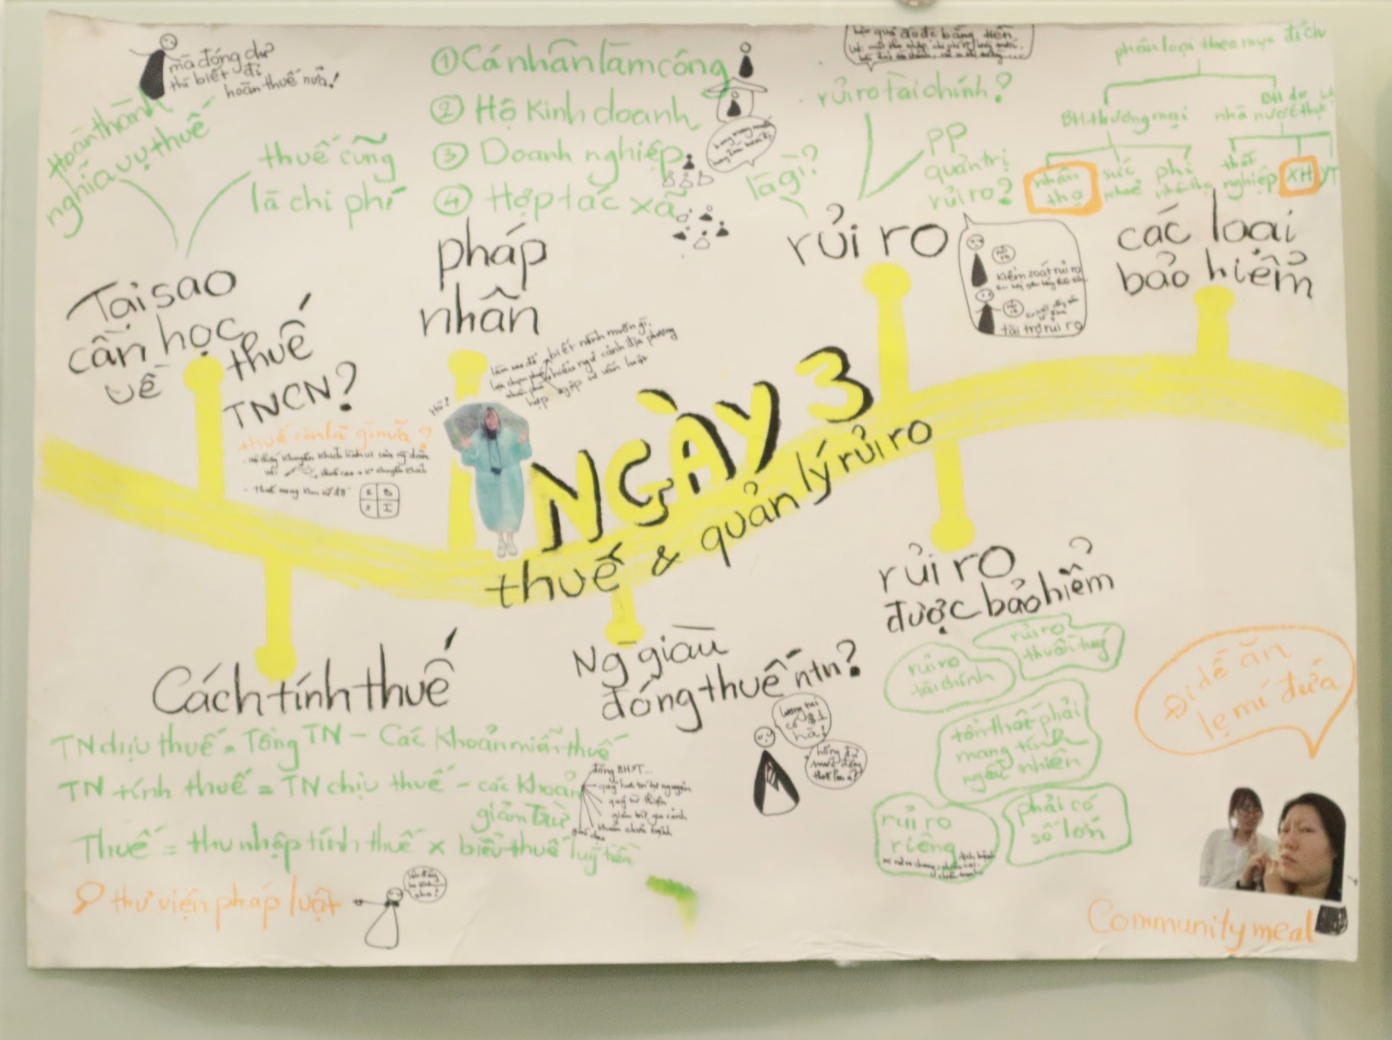 mà đóng dư
thì biết đi
hoàn thuế nữa!
Hoàn thành
nghĩa vụ thuế
thuế cũng
là chi phí
Tại sao
cần học
về
thuế
TNCN?
thuế còn là gì nữa?
① Cá nhân làm công
② Hộ Kinh doanh
③ Doanh nghiệp
④ Hợp tác xã
pháp
nhân
Hū?
là gì?
rủi ro tài chính?
PP
quản trị
rủi ro?
rủi ro
Kiểm soát rủi ro
tài trợ rủi ro
phân loại theo mục đích
BH thương mại
nhân
thọ
sức
khoẻ
phi
nhân thọ
BH do
nhà nước
thất
nghiệp
XH
YT
các loại
bảo hiểm
NGÀY 3
thuế & quản lý rủi ro
Cách tính thuế
TN chịu thuế = Tổng TN - Các Khoản miễn thuế
TN tính thuế = TN chịu thuế - các khoản
giảm trừ
Thuế = thu nhập tính thuế x biểu thuế luỹ tiến
đóng BHXT...
quỹ hưu trí tự nguyện
quỹ từ thiện
giảm trừ gia cảnh
thư viện pháp luật
Ng giàu
đóng thuế ntn?
rủi ro
được bảo hiểm
rủi ro
tài chính
rủi ro
thuần tuý
tổn thất phải
mang tính
ngẫu nhiên
rủi ro
riêng
phải có
số lớn
Đi dễ ăn
lẹ mí đứa
Community meal